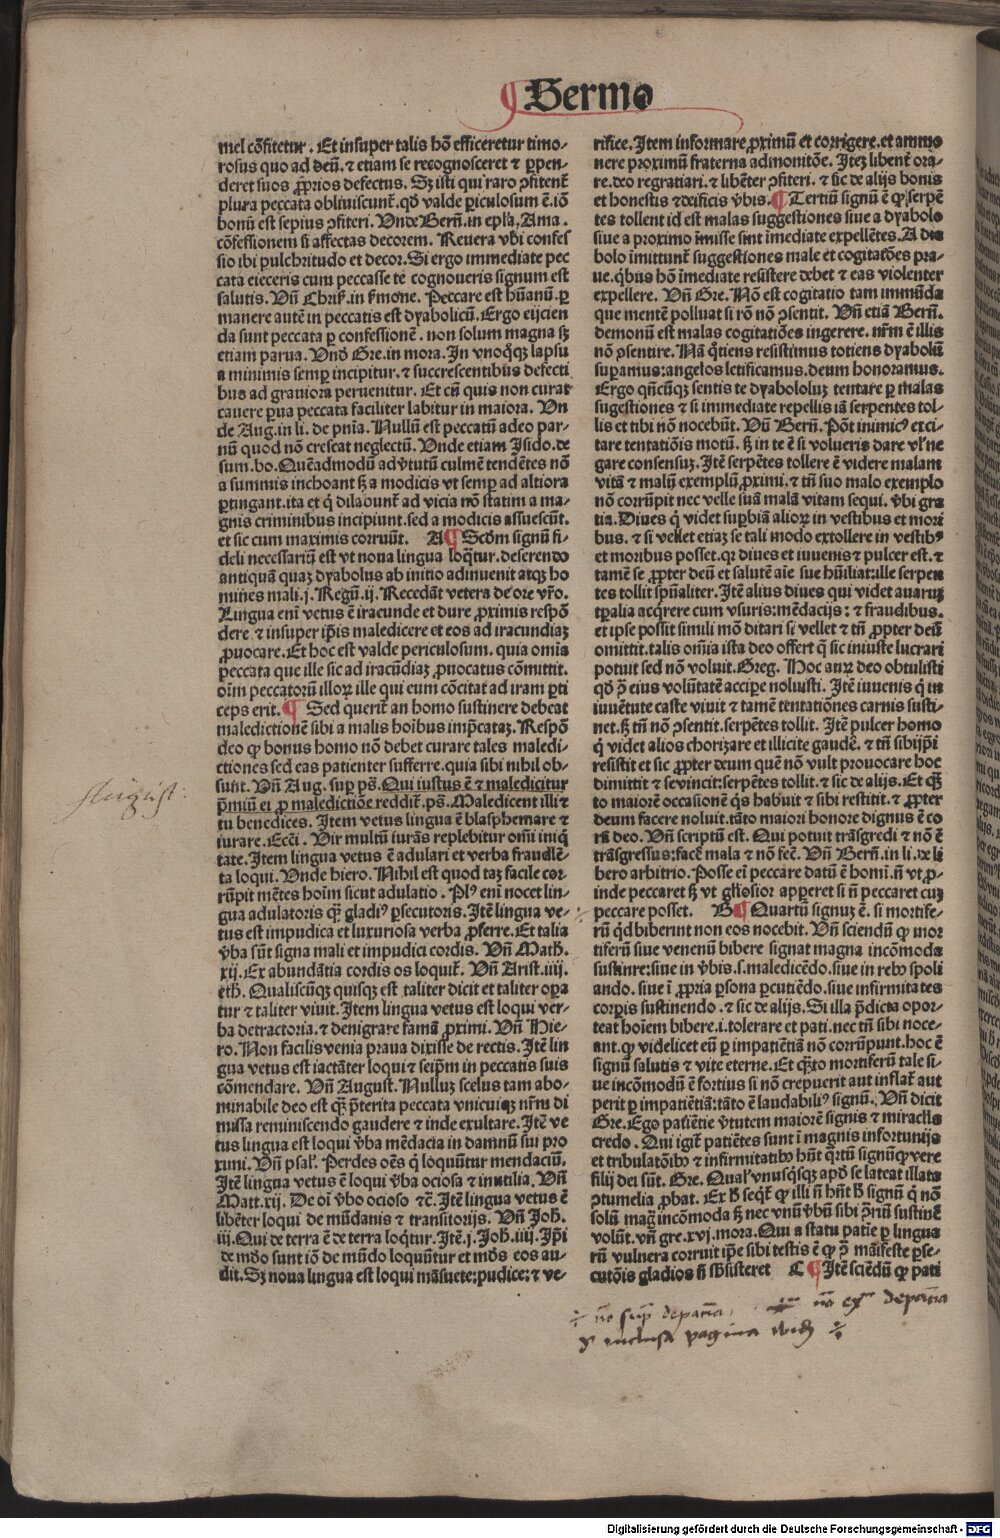 ¶ Sermo
mel cōfitetur. Et insuper talis hō efficeretur timo-
rosus quo ad deū. ⁊ etiam se recognosceret ⁊ ꝑpen-
deret suos ꝓprios defectus. Sꝫ isti qui raro ꝯfitent̄
plura peccata obliuiscunt̄. qd̄ valde ꝑiculosum ē. iō
bonū est sepius ꝯfiteri. Vnde Berñ. in epl̄a. Ama.
cōfessionem si affectas decorem. Reuera vbi confes
sio ibi pulchritudo et decor. Si ergo immediate pec
cata eieceris cum peccasse te cognoueris signum est
salutis. Vñ Chris̄. in s̄mone. Peccare est hūanū. ꝑ
manere autē in peccatis est dyabolicū. Ergo eijcien
da sunt peccata ꝑ confessionē. non solum magna sꝫ
etiam parua. Vnd̄ Gre. in mora. In vnoq̄ꝫ lapsu
a minimis semꝑ incipitur. ⁊ succrescentibus defecti
bus ad grauiora peruenitur. Et cū quis non curat
cauere ꝑua peccata faciliter labitur in maiora. Vn
de Aug. in li. de pnīa. Nullū est peccatū adeo par-
nū quod nō crescat neglectū. Vnde etiam Isido. de
sum. bo. Quēadmodū ad v̄tutū culmē tendētes nō
a summis inchoant sꝫ a modicis vt semꝑ ad altiora
ꝑtingant. ita et q̄ dilabunt̄ ad vicia nō statim a ma-
gnis criminibus incipiunt. sed a modicis assuescūt.
et sic cum maximis corruūt. A ¶ Scd̄m signū fi-
deli necessariū est vt noua lingua loq̄tur. deserendo
antiquā quaꝫ dyabolus ab initio adinuenit atqꝫ ho
mines mali. j. Regū. ij. Recedāt vetera de ore vr̄o.
Lingua enī vetus ē iracunde et dure ꝓximis respō
dere ⁊ insuper ip̄is maledicere et eos ad iracundiaꝫ
ꝓuocare. Et hoc est valde periculosum. quia omīa
peccata que ille sic ad iracūdiaꝫ ꝓuocatus cōmittit.
oīm peccatorū illoꝝ ille qui eum cōcitat ad iram ꝑti
ceps erit. ¶ Sed querit̄ an homo sustinere debeat
maledictionē sibi a malis hoībus imp̄cataꝫ. Respō
deo ꝙ bonus homo nō debet curare tales maledi-
ctiones sed eas patienter sufferre. quia sibi nihil ob-
sunt. Vñ Aug. suꝑ ps̄. Qui iustus ē ⁊ maledicitur
p̄miū ei ꝓ maledictiōe reddit̄. ps̄. Maledicent illi ⁊
tu benedices. Item vetus lingua ē blasphemare ⁊
iurare. Ecc̄i. Vir multū iurās replebitur om̄i iniq̄
tate. Item lingua vetus ē adulari et verba fraudulē-
ta loqui. Vnde hiero. Nihil est quod taꝫ facile cor-
rūpit mētes hoīm sicut adulatio. Plꝰ enī nocet lin-
gua adulatoris q̄ꝫ gladiꝰ ꝑsecutoris. Itē lingua ve-
tus est impudica et luxuriosa verba ꝓferre. Et talia
v̄ba sūt signa mali et impudici cordis. Vñ Math.
xij. Ex abundātia cordis os loquit̄. Vñ Arist. iiij.
eth̄. Qualiscūqꝫ quisqꝫ est taliter dicit et taliter oꝑa
tur ⁊ taliter viuit. Item lingua vetus est loqui ver-
ba detractoria. ⁊ denigrare famā ꝓximi. Vñ Hie-
ro. Non facilis venia praua dixisse de rectis. Itē lin
gua vetus est iactāter loqui ⁊ seip̄m in peccatis suis
cōmendare. Vñ August. Nulluꝫ scelus tam abo-
minabile deo est q̄ꝫ p̄terita peccata vnicuiqꝫ nr̄m di
missa reminiscendo gaudere ⁊ inde exultare. Itē ve
tus lingua est loqui v̄ba mēdacia in damnū sui pro
ximi. Vñ psal̄. Perdes oēs q̄ loquūtur mendaciū.
Itē lingua vetus ē loqui v̄ba ociosa ⁊ inutilia. Vñ
Matt. xij. De oī v̄bo ocioso ⁊c̄. Itē lingua vetus ē
libēter loqui de mūdanis ⁊ transitorijs. Vñ Joh.
iij. Qui de terra ē de terra loq̄tur. Itē. j. Joh. iiij. Ip̄i
de mūdo sunt iō de mūdo loquūtur et mūdꝰ eos au-
dit. Sꝫ noua lingua est loqui māsuete: pudice: ⁊ ve-
rifice. Item informare ꝓximū et corrigere. et ammo
nere proximū fraterna admonitōe. Iteꝫ libent̄ ora-
re. deo regratiari. ⁊ libēter ꝯfiteri. ⁊ sic de alijs bonis
et honestis ⁊ deificis v̄bis. ¶ Tertiū signū ē ꝙ serpē
tes tollent id est malas suggestiones siue a dyabolo
siue a proximo īmisse sint īmediate expellētes. A dia
bolo imittunt̄ suggestiones male et cogitatōes pra-
ue. q̄bus hō īmediate resistere debet ⁊ eas violenter
expellere. Vñ Gre. Nō est cogitatio tam immūda
que mentē polluat si rō nō ꝯsentit. Vñ etiā Berñ.
demonū est malas cogitatiōes ingerere. nr̄m ē illis
nō ꝯsentire. Nā q̄tiens resistimus totiens dyabolū
suꝑamus: angelos letificamus. deum honoramus.
Ergo qn̄cūqꝫ sentis te dyaboloꝫ tentare ꝑ malas
sugestiones ⁊ si immediate repellis iā serpentes tol-
lis et tibi nō nocebūt. Vñ Berñ. Pōt inimicꝰ exci-
tare tentatiōis motū. sꝫ in te ē si volueris dare vl̄ ne
gare consensuꝫ. Itē serpētes tollere ē videre malam
vitā ⁊ malū exemplū ꝓximi. ⁊ tn̄ suo malo exemplo
nō corrūpit nec velle suā malā vitam sequi. v̄bi gra
tia. Diues q̄ videt suꝑbiā alioꝝ in vestibus et mori
bus. ⁊ si vellet etiaꝫ se tali modo extollere in vestibꝰ
et moribus posset. qꝛ diues et iuuenis ⁊ pulcer est. ⁊
tamē se ꝓpter deū et salutē aīe sue hūiliat: ille serpen
tes tollit spūaliter. Itē alius diues qui videt auaruꝫ
tꝑalia acq̄rere cum vsuris: mēdacijs: ⁊ fraudibus.
et ipse possit simili mō ditari si vellet ⁊ tn̄ ꝓpter deū
omittit. talis om̄ia ista deo offert q̄ sic iniuste lucrari
potuit sed nō voluit. Greg. Hoc auꝝ deo obtulisti
qd̄ p̄ eius volūtatē acciꝑe noluisti. Itē iuuenis q̄ in
iuuētute caste viuit ⁊ tamē tentatiōnes carnis susti-
net. sꝫ tn̄ nō ꝯsentit. serpētes tollit. Itē pulcer homo
q̄ videt alios chorizare et illicite gaudē. ⁊ tn̄ sibijp̄i
resistit et sic ꝓpter deum quē nō vult prouocare hoc
dimittit ⁊ se vincit: serpētes tollit. ⁊ sic de alijs. Et q̄ꝫ
to maiorē occasionē q̄s habuit ⁊ sibi restitit. ⁊ ꝓpter
deum facere noluit. tāto maiori honore dignus ē co
rā deo. Vñ scriptū est. Qui potuit trāsgredi ⁊ nō ē
trāsgressus: facē mala ⁊ nō fec̄. Vñ Berñ. in li. de li
bero arbitrio. Posse eī peccare datū ē homī. n̄ vt ꝓ-
inde peccaret sꝫ vt gl̄iosior apperet si n̄ peccaret cuꝫ
peccare posset. B ¶ Quartū signuꝫ ē. si mortife-
rū qd̄ biberint non eos nocebit. Vñ sciendū ꝙ mor
tiferū siue venenū bibere signat magna incōmoda
sustinre: siue in v̄bis. s. maledicēdo. siue in rebꝰ spoli
ando. siue ī ꝓpria ꝑsona ꝑcutiēdo. siue infirmitates
corꝑis sustinendo. ⁊ sic de alijs. Si illa p̄dicta opor-
teat hoīem bibere. i. tolerare et pati. nec tn̄ sibi noce-
ant. ꝙ videlicet eū ꝑ impatiētiā nō corrūpunt. hoc ē
signū salutis ⁊ vite eterne. Et q̄ꝫto mortiferū tale si-
ue incōmodū ē fortius si nō crepuerit aut inflat̄ aut
perit ꝑ impatiētiā: tāto ē laudabiliꝰ signū. Vñ dicit
Gre. Ego patiētie v̄tutem maiorē signis ⁊ miraclis
credo. Qui igit̄ patiētes sunt ī magnis infortunijs
et tribulatōibꝰ ⁊ infirmitatibꝰ hn̄t q̄rtū signū ꝙ vere
filij dei sūt. Gre. Qual̄ vnusq̄sqꝫ apd̄ se lateat illata
ꝯtumelia ꝓbat. Ex h̄ seq̄t̄ ꝙ illi n̄ hn̄t h̄ signū q̄ nō
solū mag̃ incōmoda sꝫ nec vnū v̄bū sibi ꝯriū sustinē
volūt. vñ gre. xvj. mora. Qui a statu patīe ꝑ lingua
rū vulnera corruit ip̄e sibi testis ē ꝙ p̄ māifeste ꝑse-
cutōis gladios n̄ sb̄sisteret C ¶ Itē sciēdū ꝙ pati
August.
Digitalisierung gefördert durch die Deutsche Forschungsgemeinschaft - DFG